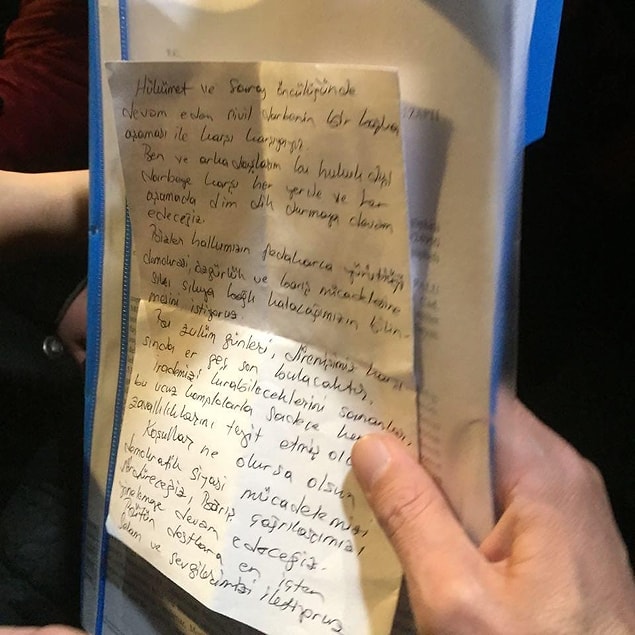 Hükümet ve Saray öncülüğünde
devam eden sivil darbenin bir başka
aşaması ile karşı karşıyayız.
Ben ve arkadaşlarım bu hukuk dışı
darbeye karşı her yerde ve her
aşamada dim dik durmaya devam
edeceğiz.
Bizler halkımızın fedakarca yürüttüğü
demokrasi, özgürlük ve barış mücadelesine
sıkı sıkıya bağlı kalacağımızın bilin-
mesini istiyoruz.
Bu zulüm günleri, direnişimiz karşı
sında er geç son bulacaktır.
İrademizi kırabileceklerini sananlar,
bu ucuz komplolarla sadece
zavallılıklarını teşhir etmiş
Koşullar ne olursa olsun
demokratik siyasi mücadelemizi
sürdüreceğiz, Barış çağrılarımızı
yinelemeye devam edeceğiz.
Bütün dostlara en içten
selam ve sevgilerimizi iletiyoruz